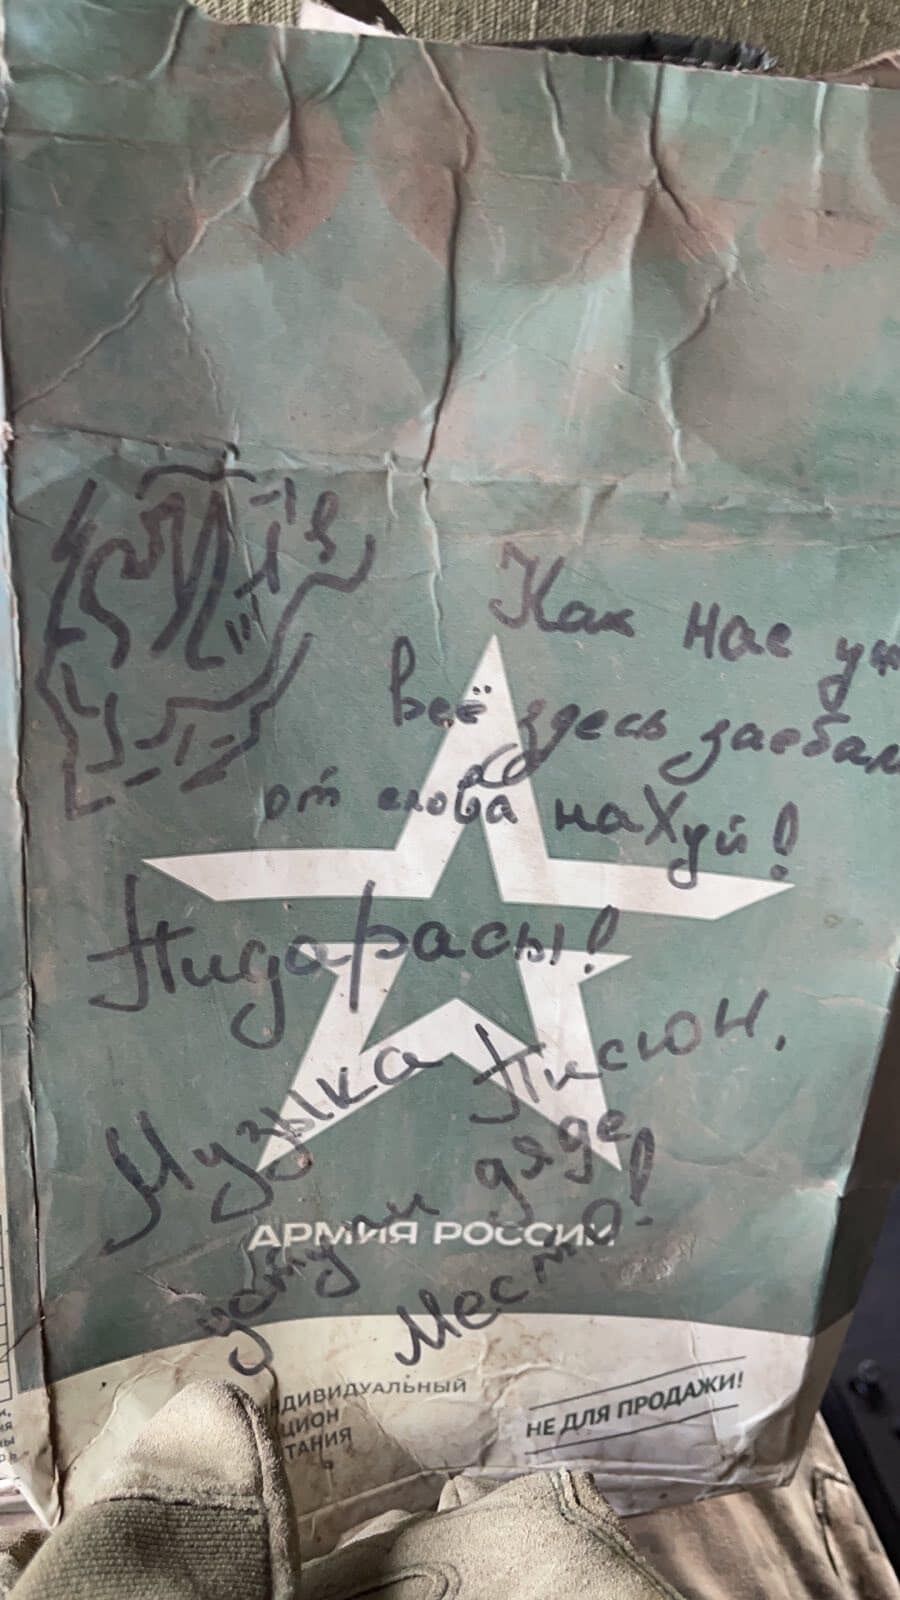 Как нас уж
всё здесь заебал
от слова нахуй!
Пидарасы!
Музыка Писюн,
уступи дяде
Место!
АРМИЯ РОССИИ
ИНДИВИДУАЛЬНЫЙ
ЦИОН
ТАНИЯ
НЕ ДЛЯ ПРОДАЖИ!